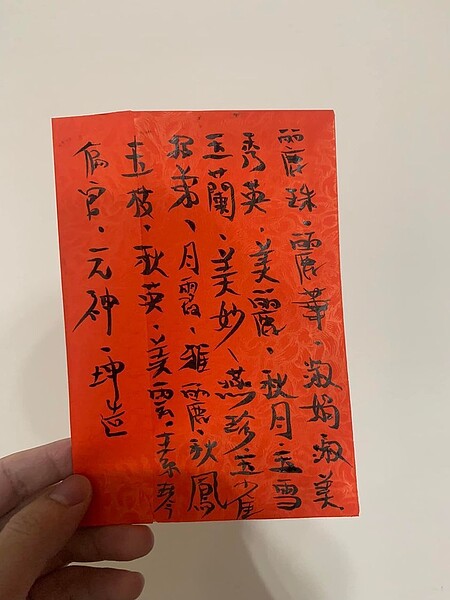 麗珠、麗華、淑娟淑美
秀英、美麗、秋月、玉雪
玉蘭、美妙、燕珍玉雀
招弟、月霞、雅麗、秋鳳
玉枝、秋英、美雲、素琴
偏曾、元神、坤造